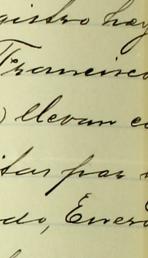 gistro hay
Francisco
) llevan co
itas por
do, Enero